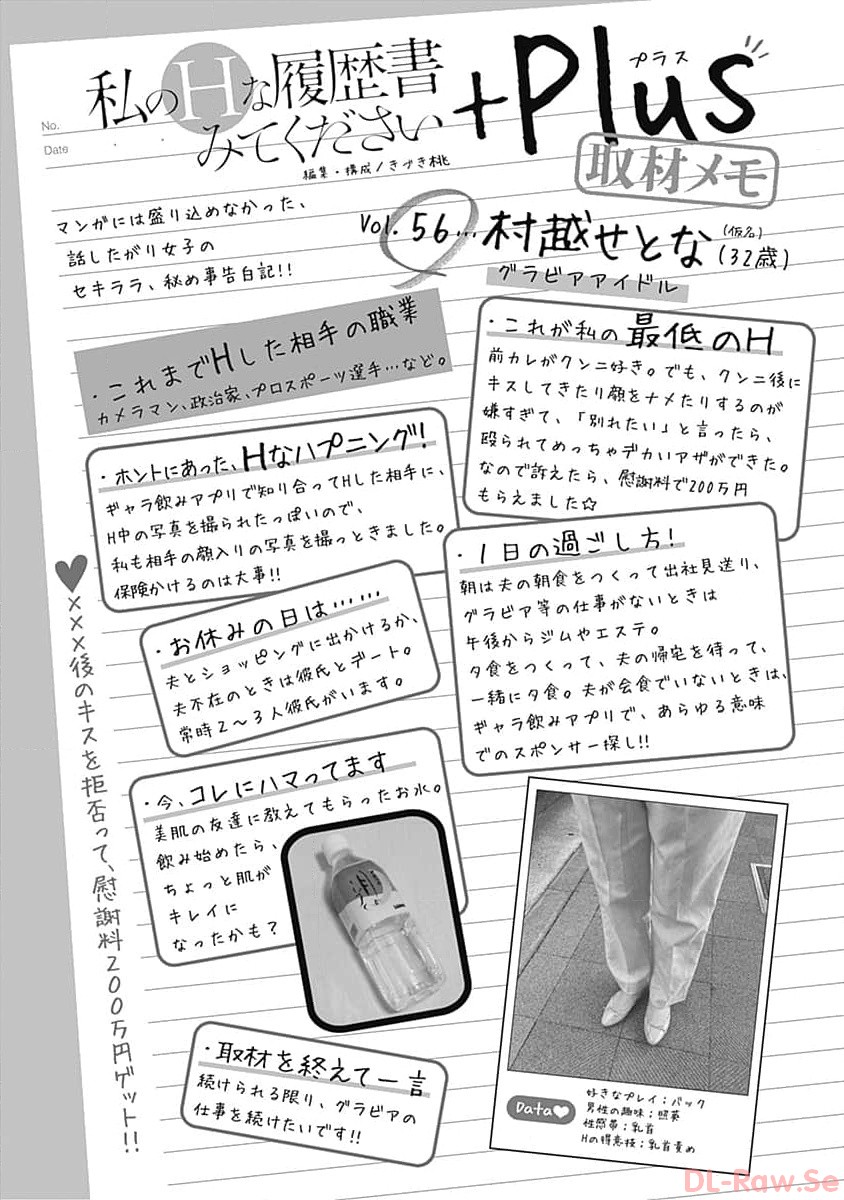 No.
Date
私のHな履歴書
みてください
+Plus
プラス
編集・構成/きづき桃
取材メモ
マンガには盛り込めなかった、
話したがり女子の
セキララ、秘め事告白記!!
Vol. 56…村越せとな(仮名)(32歳)
グラビアアイドル
・これまでHした相手の職業
カメラマン、政治家、プロスポーツ選手…など。
・これが私の最低のH
前カレがクンニ好き。でも、クンニ後に
キスしてきたり顔をナメたりするのが
嫌すぎて、「別れたい」と言ったら、
殴られてめっちゃデカいアザができた。
なので訴えたら、慰謝料で200万円
もらえました☆
・ホントにあった、Hなハプニング!
ギャラ飲みアプリで知り合ってHした相手に、
H中の写真を撮られたっぽいので、
私も相手の顔入りの写真を撮っときました。
保険かけるのは大事!!
・1日の過ごし方!
朝は夫の朝食をつくって出社見送り、
グラビア等の仕事がないときは
午後からジムやエステ。
夕食をつくって、夫の帰宅を待って、
一緒に夕食。夫が会食でいないときは、
ギャラ飲みアプリで、あらゆる意味
でのスポンサー探し!!
・お休みの日は……
夫とショッピングに出かけるか、
夫不在のときは彼氏とデート。
常時2~3人彼氏がいます。
♥×××後のキスを拒否って、慰謝料200万円ゲット!!
・今、コレにハマってます
美肌の友達に教えてもらったお水。
飲み始めたら、
ちょっと肌が
キレイに
なったかも?
・取材を終えて一言
続けられる限り、グラビアの
仕事を続けたいです!!
Data♥
好きなプレイ;バック
男性の趣味;照英
性感帯;乳首
Hの得意技;乳首責め
DL-Raw.Se